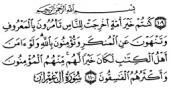 بسم الله الرحمن الرحيم
كُنتُمْ خَيْرَ أُمَّةٍ أُخْرِجَتْ لِلنَّاسِ تَأْمُرُونَ بِالْمَعْرُوفِ
وَتَنْهَوْنَ عَنِ الْمُنكَرِ وَتُؤْمِنُونَ بِاللَّهِ وَلَوْ ءَامَنَ
أَهْلُ الْكِتَٰبِ لَكَانَ خَيْرًا لَّهُم مِّنْهُمُ الْمُؤْمِنُونَ
وَأَكْثَرُهُمُ الْفَٰسِقُونَ ١١٠ سورة آل عمران